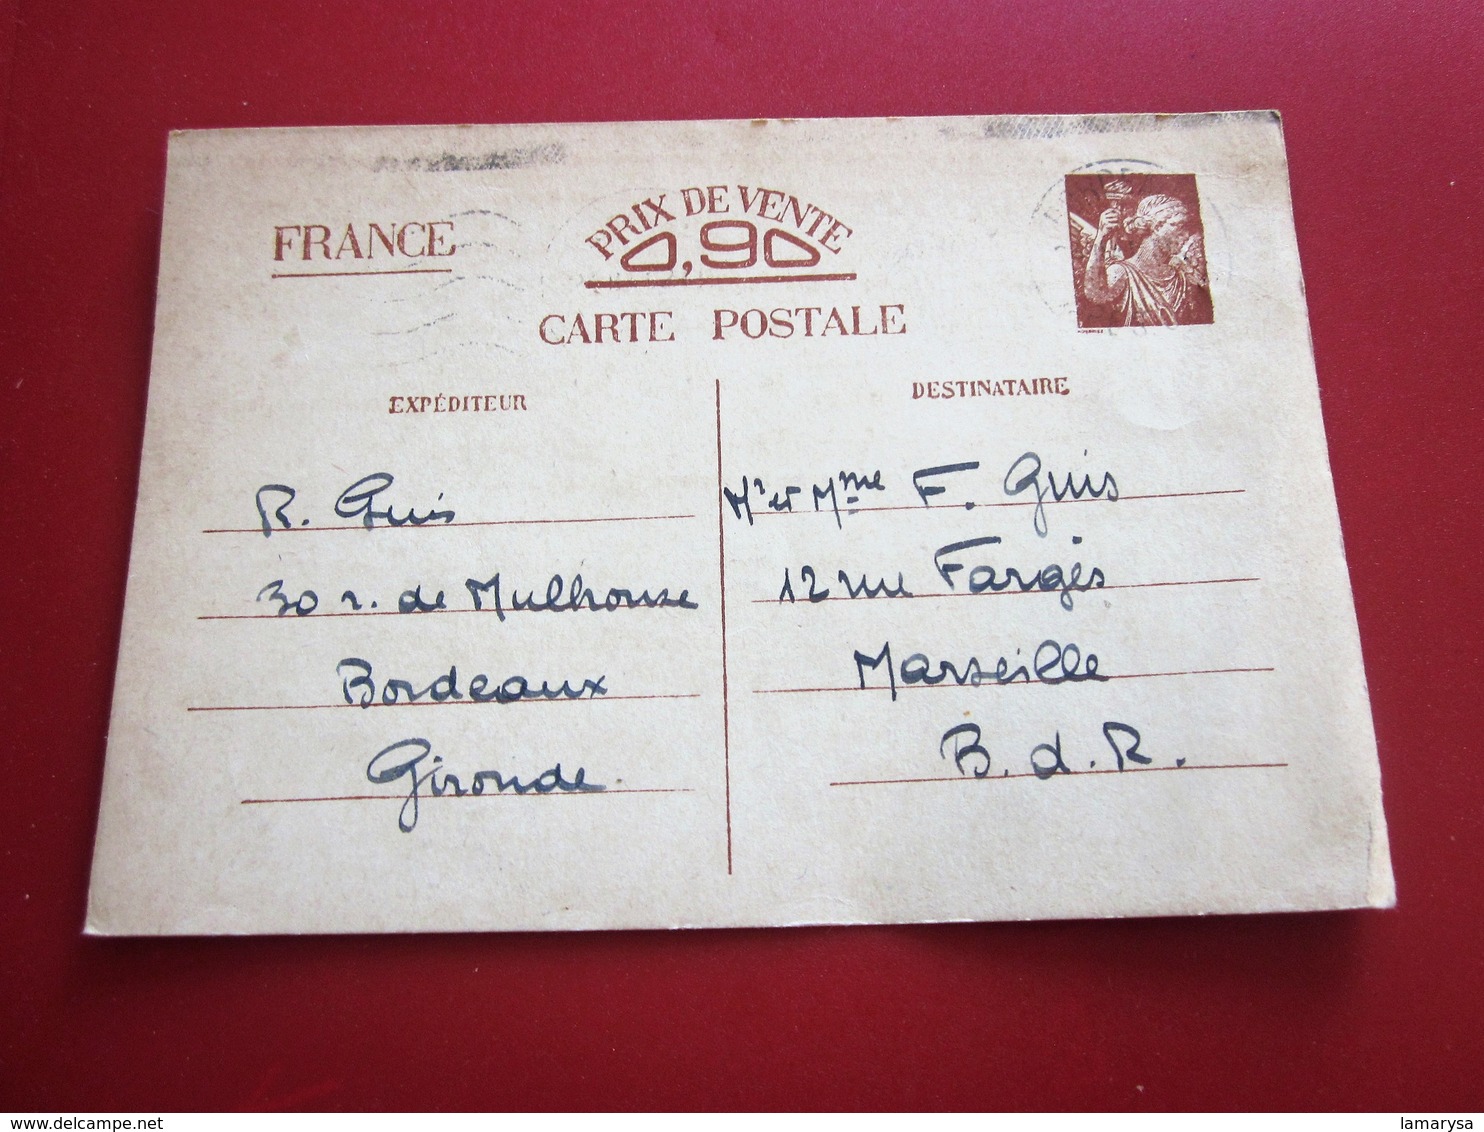 FRANCE
PRIX DE VENTE
0,90
CARTE POSTALE
EXPÉDITEUR
DESTINATAIRE
R. Guis
30 r. de Mulhouse
Bordeaux
Gironde.
Mr et Mme F. Guis
12 rue Fargès
Marseille
B. d. R.
delcampe.net
lamarysa